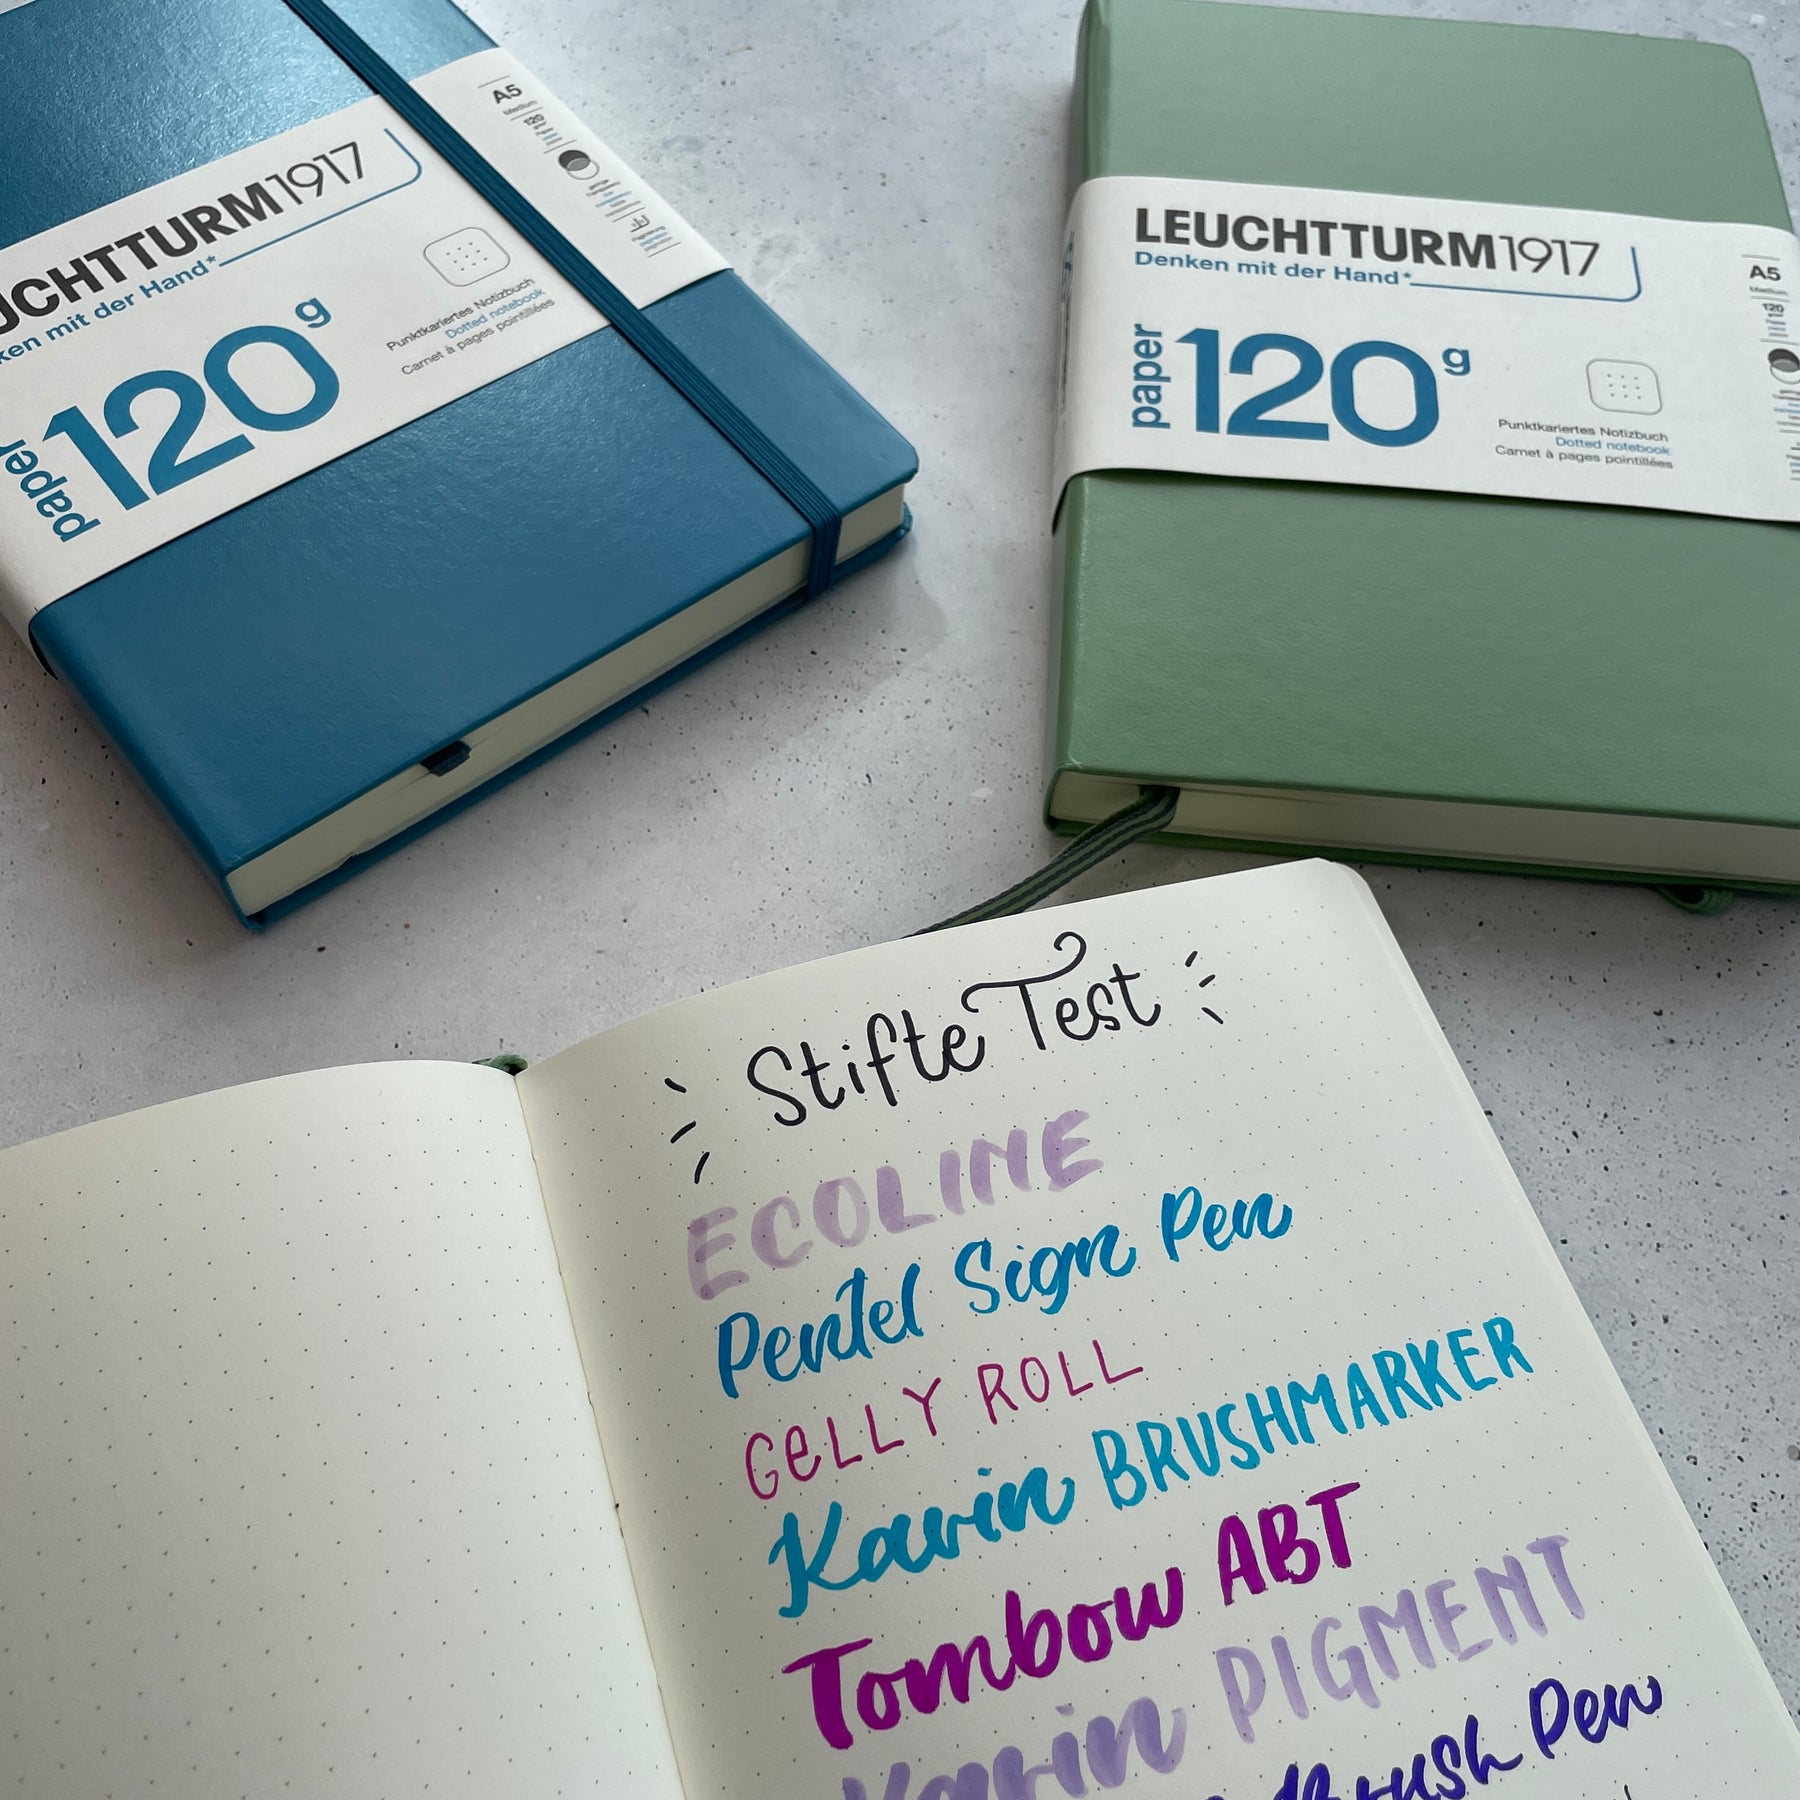 LEUCHTTURM1917
Denken mit der Hand*
paper 120g
Punktkariertes Notizbuch
Dotted notebook
Carnet à pages pointillées
A5
Medium
120
UCHTTURM1917
ken mit der Hand*
paper 120g
Punktkariertes Notizbuch
Dotted notebook
Carnet à pages pointillées
A5
Medium
120
Stifte Test
ECOLINE
Pentel Sign Pen
GeLLY ROLL
Karin BRUSHMARKER
Tombow ABT
Karin PIGMENT
Brush Pen